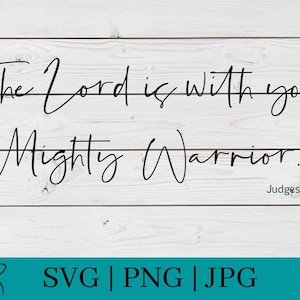 The Lord is with yo
Mighty Warrior.
Judges
SVG | PNG | JPG